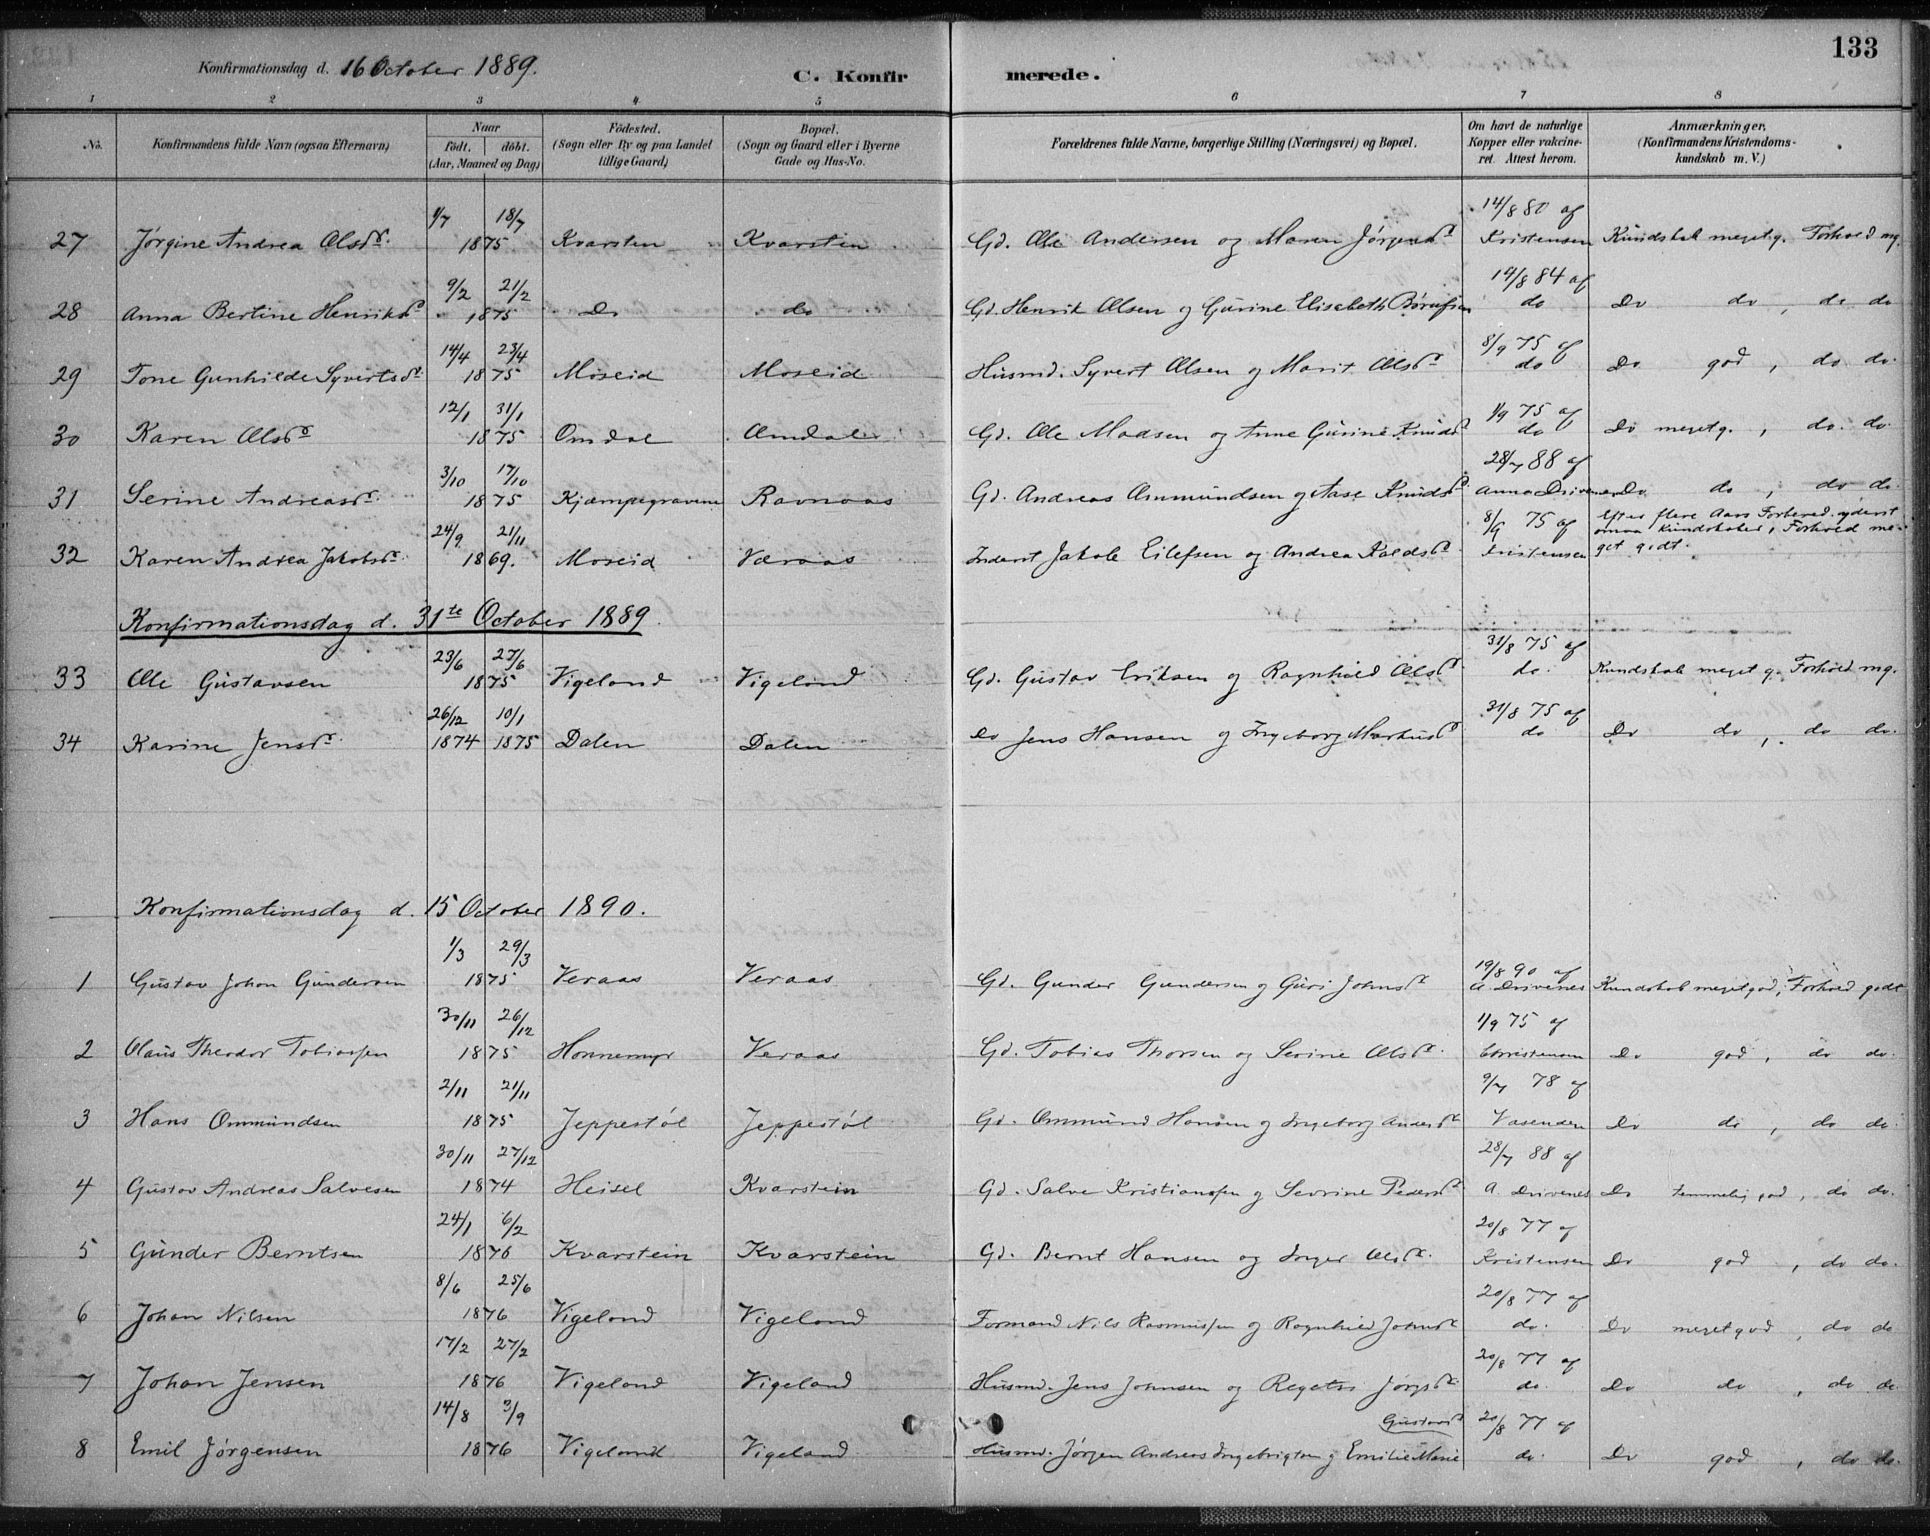 133
Konfirmationsdag d. 16 October 1889.
C. Konfirmerede.
1 2 3 4 5 6 7 8
No. Konfirmandens fulde Navn (ogsaa Efternavn) Naar Födt. döbt. (Aar, Maaned og Dag) Födested. (Sogn eller By og paa Landet tillige Gaard) Bopæl. (Sogn og Gaard eller i Byerne Gade og Hus-No. Forældrenes fulde Navne, borgerlige Stilling (Næringsvei) og Bopæl. Om havt de naturlige Kopper eller vakcineret. Attest herom. Anmærkninger. (Konfirmandens Kristendomskundskab m. V.)
1/7 18/7 14/8 80 af
27 Jørgine Andrea Olsd. 1875 Kvarsten Kvarstein Gd. Ole Andersen og Maren Jørgensd Kristensen Kundskab meget g. Forhold mg.
9/2 21/2 19/8 84 af
28 Anna Bertine Henriksd 1875 Do do Gd. Henrik Olsen og Gurine Elisabeth do Do do, do do
14/4 23/4 8/9 75 af
29 Tone Gunhilde Syvertsd. 1875 Moseid Moseid Husmd. Syvert Olsen og Marit Olsd do Do god, do do.
12/1 31/1 1/9 75 af
30 Karen Olsd 1875 Omdal Omdal Gd. Ole Madsen og Anne Gurine Knudsd do Do meget g., do. do.
3/10 17/10 28/7 88 af
31 Serine Andreasd. 1875 Kjæmpegravene Ravnaas Gd. Andreas Ommundsen og Aase Knudsd Anna Drivenes Do do, do do.
24/9 21/11 8/9 75 af Efter flere Aars Forbered. yderst
32 Karen Andrea Jakobsd. 1869. Moseid Væraas Inderst Jakob Eilefsen og Andrea Kristensen smaa Kundskaber, Forhold meget godt.
Konfirmationsdag d. 31te October 1889.
23/6 27/6 31/8 75 af
33 Ole Gustavsen 1875 Vigeland Vigeland Gd. Gustav Eriksen og Ragnhild Olsd do. Kundskab meget g. Forhold mg.
26/12 10/1 31/8 75 af
34 Karine Jensd. 1874 1875 Dalen Dalen Do Jens Hansen og Ingeborg Markusd do Do do, do do.
Konfirmationsdag d. 15 October 1890.
1/3 29/3 19/8 90 af
1 Gustav Johan Gundersen 1875 Veraas Veraas Gd. Gunder Gundersen og Guri Johnsd A. Drivenes Kundskab meget god, Forhold godt
30/11 26/12 1/9 75 af
2 Olaus Theodor Tobiassen 1875 Honnemyr Veraas Gd. Tobias Thorsen og Serine Olsd. Christensen Do god, do do.
2/11 21/11 9/7 78 af
3 Hans Ommundsen 1875 Jeppestøl Jeppestøl Gd. Ommund Hansen og Ingeborg Andersd Vasenden Do do, do do.
30/11 27/12 28/7 88 af
4 Gustav Andreas Salvesen 1874 Heisel Kvarstein Gd. Salve Kristianssen og Sevrine Pedersd A. Drivenes Do temmelig god, do do.
24/1 6/2 20/8 77 af
5 Gunder Berntsen 1876 Kvarstein Kvarstein Gd. Bernt Hansen og Inger Olsd. Kristensen Do god, do do.
8/6 25/6 20/8 77 af
6 Johan Nilsen 1876 Vigeland Vigeland Formand Nils Rasmussen og Ragnhild Johnsd do. Do meget god, do do
17/2 27/2 20/8 77 af
7 Johan Jensen 1876 Vigeland Vigeland Husmd. Jens Johnsen og do. Do do, do do.
14/8 3/9 Gustavsd 20/8 77 af
8 Emil Jørgensen 1876 Vigeland Vigeland Husmd. Jørgen Andreas Ingebrigtsen og Emilie Marie do. Do god, do do.